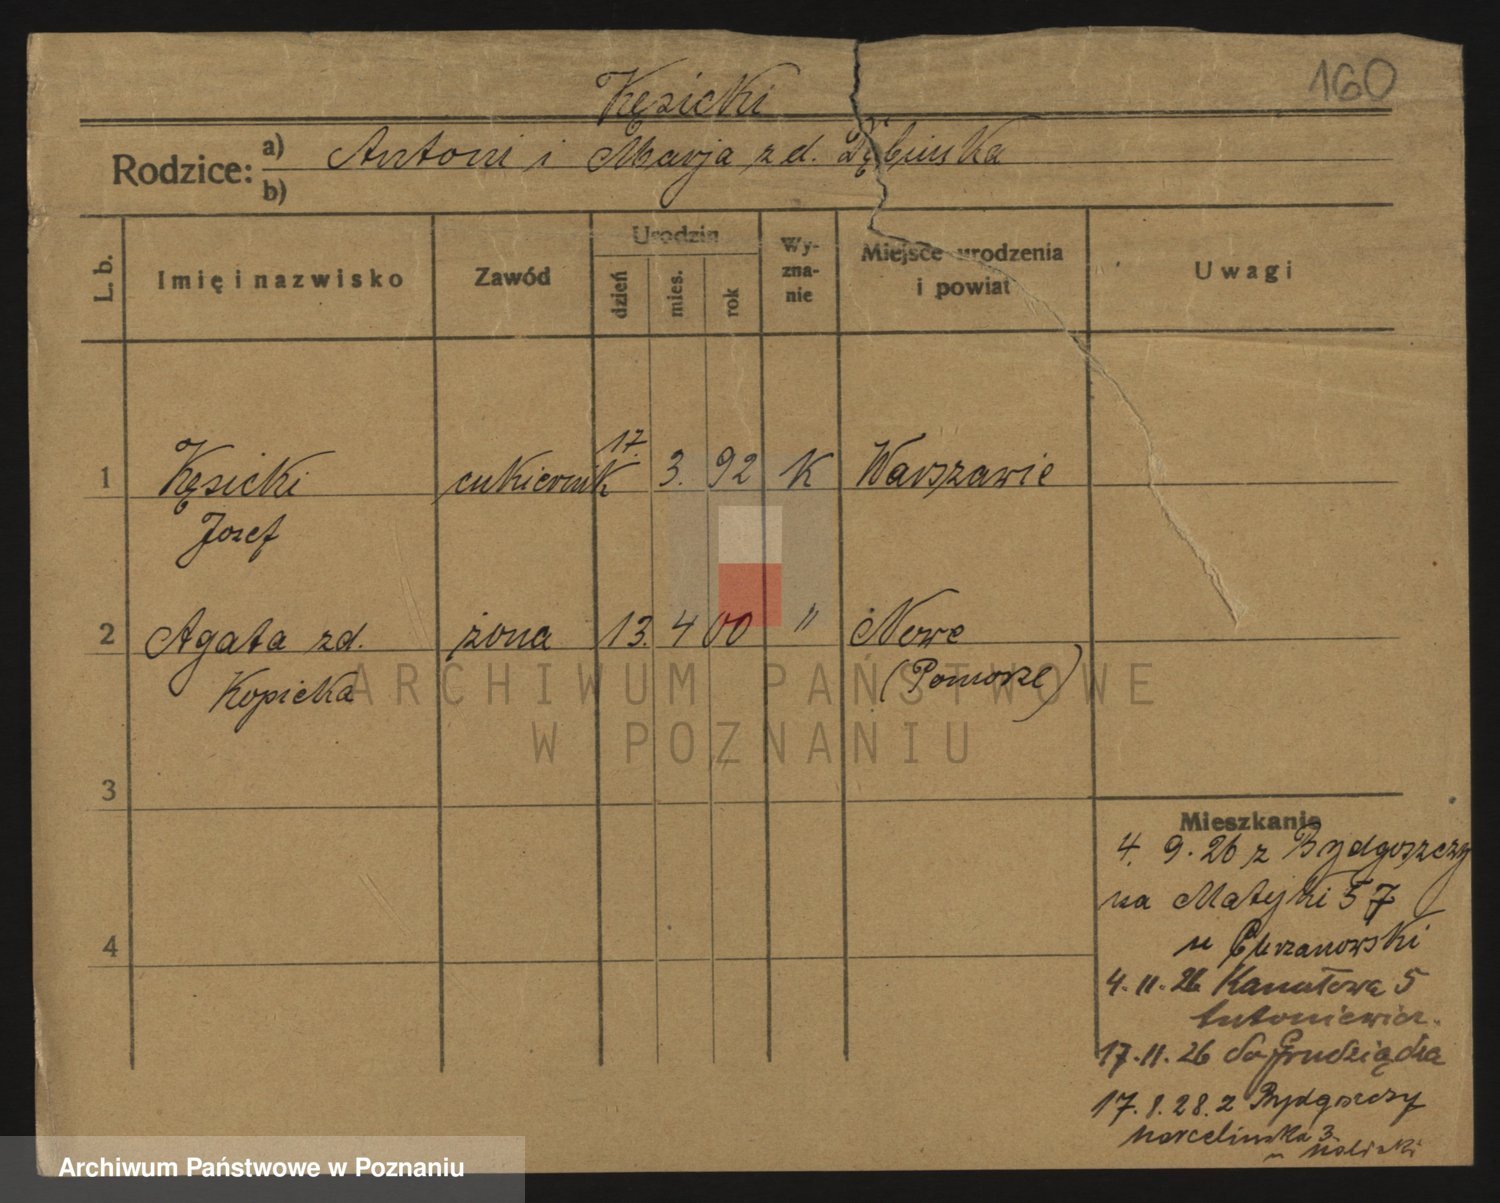 160
Kęsicki
Rodzice: a) Antoni i Marja z d. Dębińska
b)
L. b.
Imię i nazwisko
Zawód
Urodzin
dzień
mies.
rok
Wy-
zna-
nie
Miejsce urodzenia
i powiat
Uwagi
1 Kęsicki cukiernik 17. 3. 92 K Warszawie
Józef
2 Agata zd. żona 13. 4 00 " Nowe
Kopicka (Pomorze)
3
4
Mieszkanie
4. 9. 26 z Bydgoszczy
na Matejki 57
u Chrzanowski
4. 11. 26 Kanałowa 5
Antoniewicz.
17. 11. 26 do Grudziądza
17. 8. 28. z Bydgoszczy
Marcelińska 3
ARCHIWUM PAŃSTWOWE
W POZNANIU
Archiwum Państwowe w Poznaniu